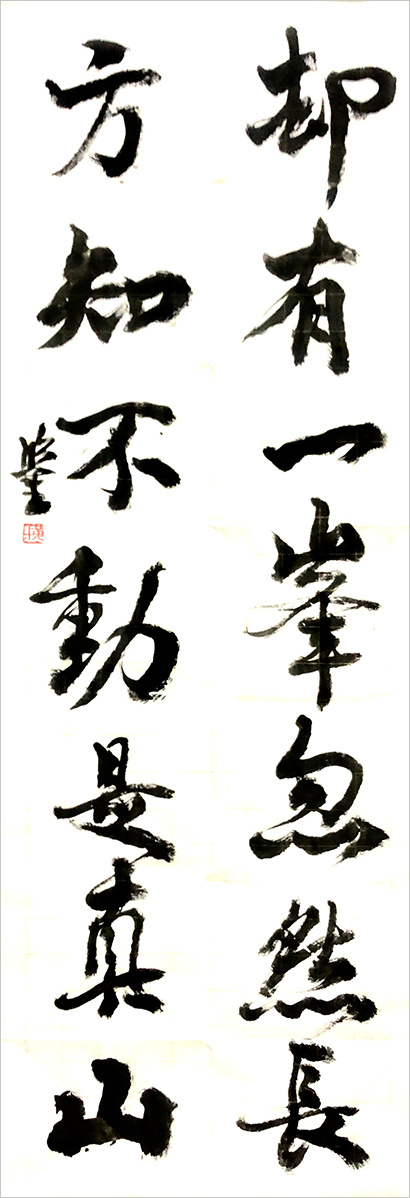 却有一峯忽然長
方知不動是真山